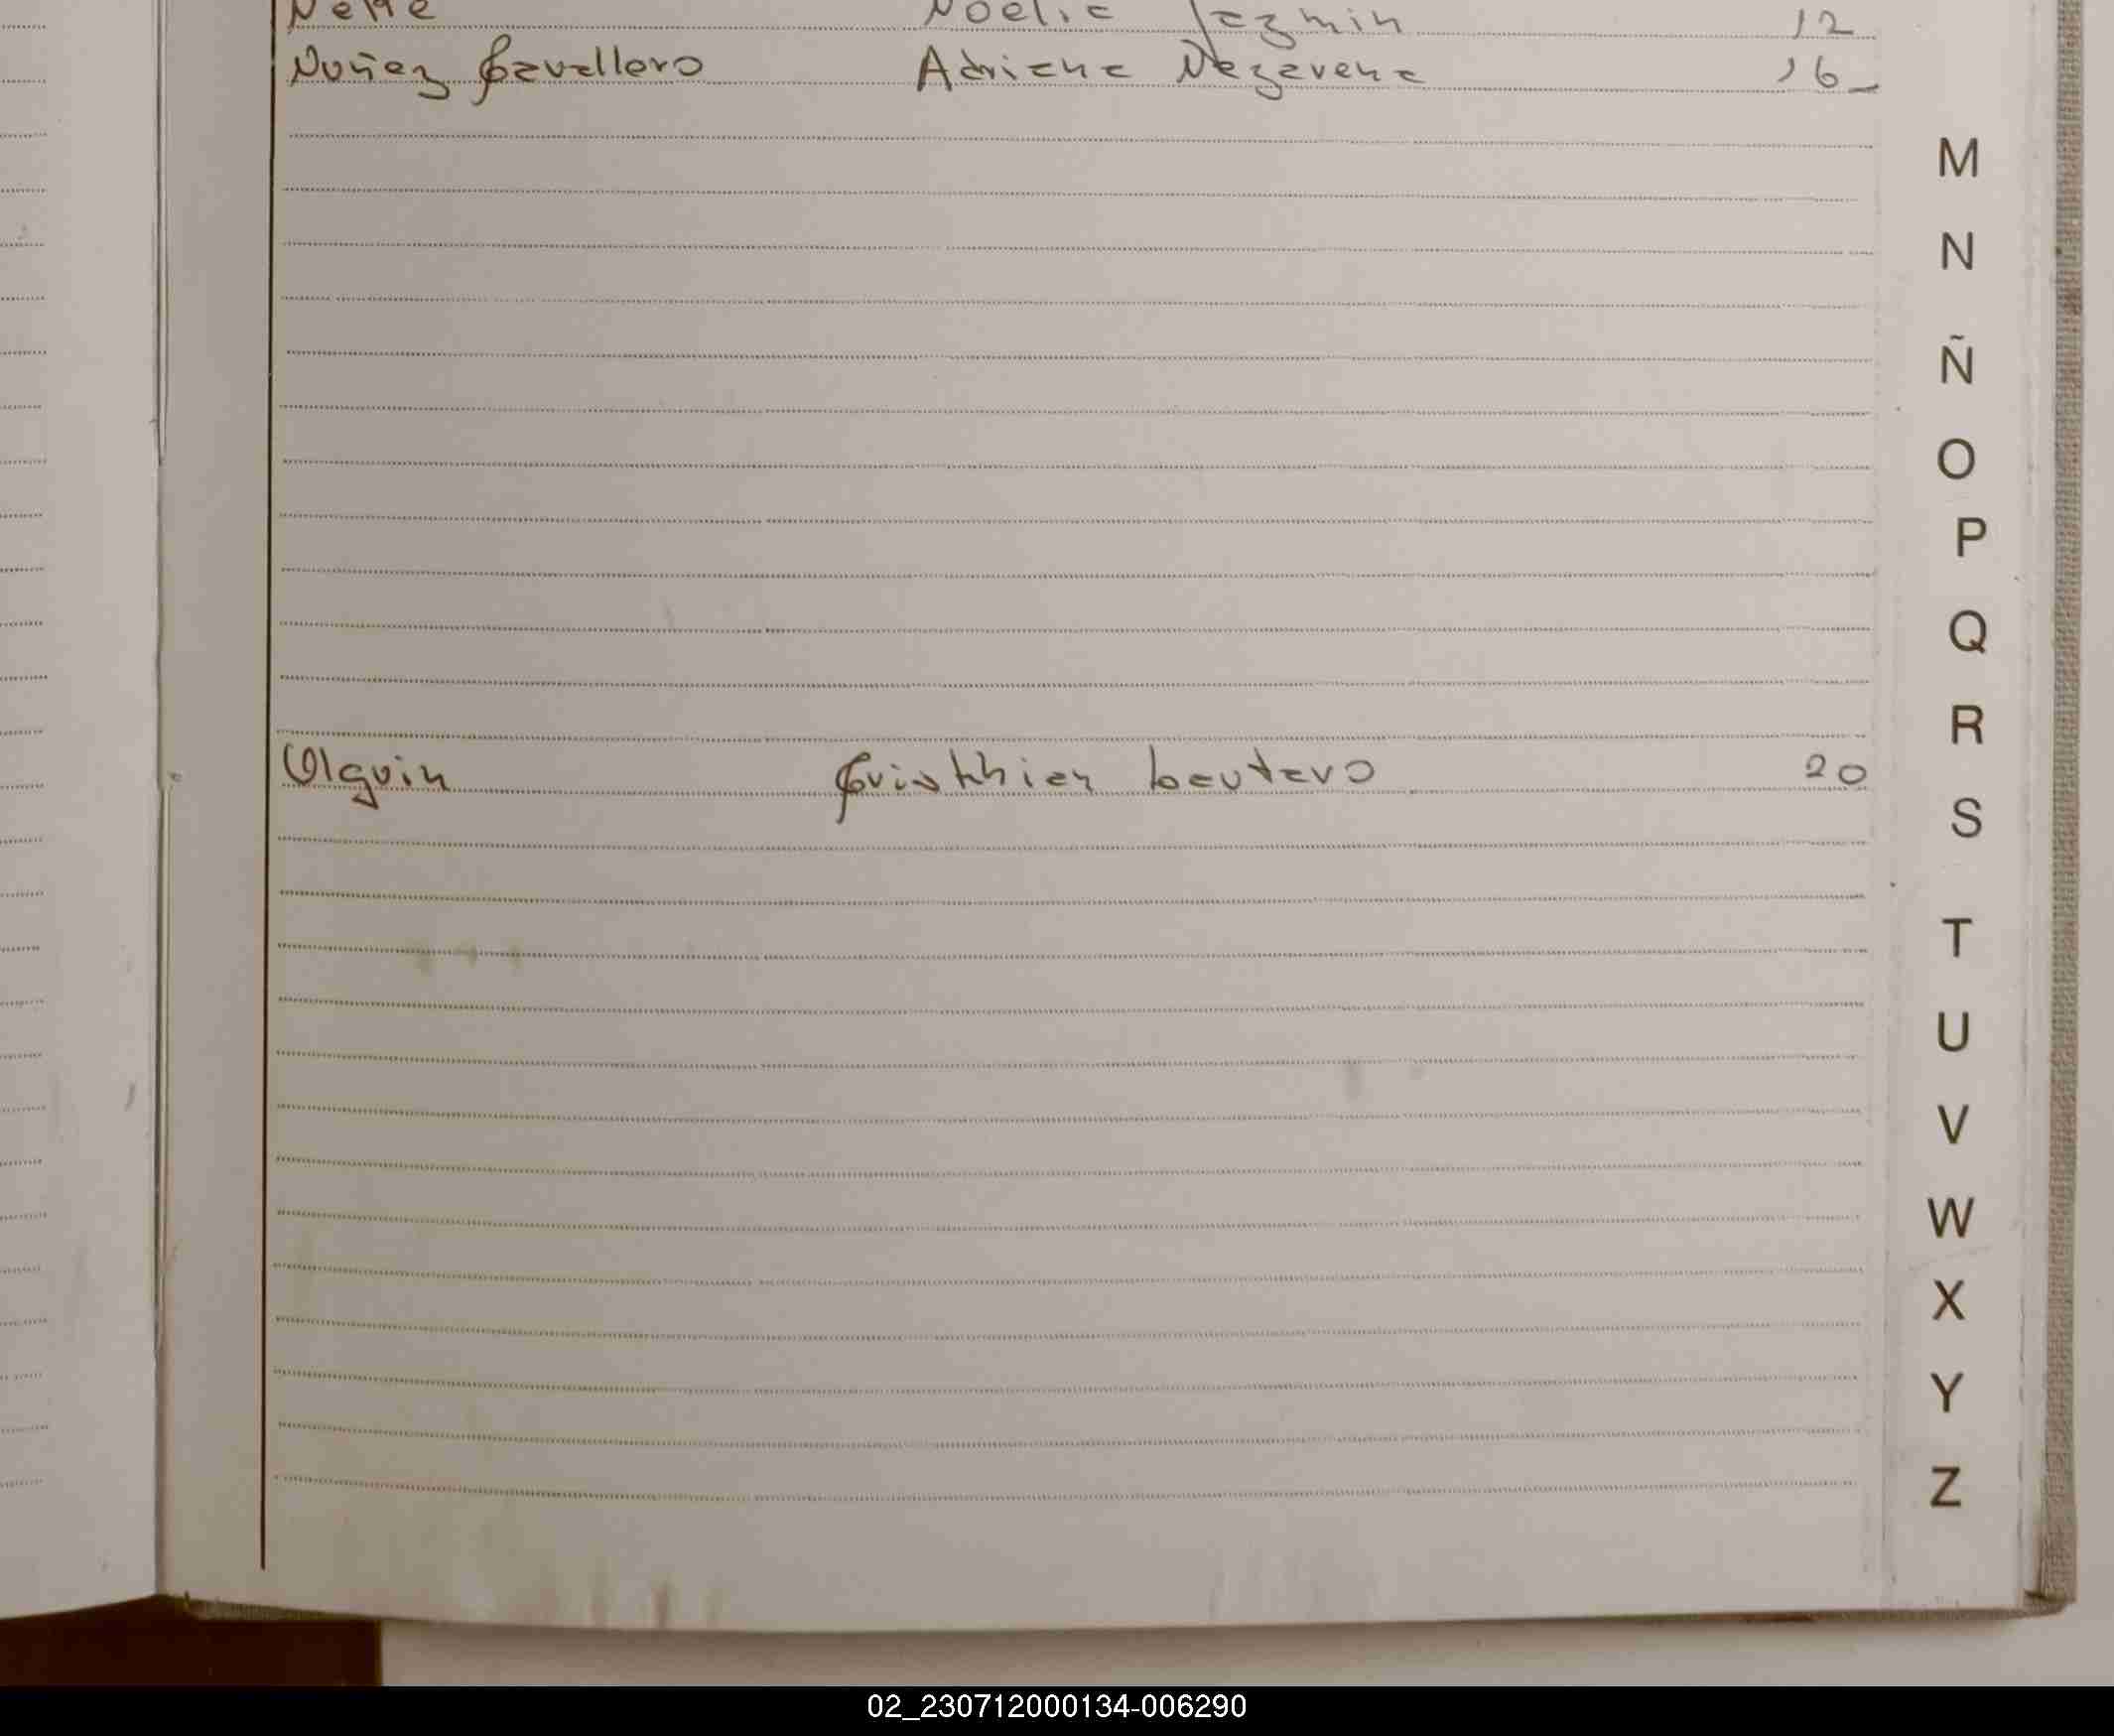 Noelia Jazmin 12
Nuñez Cavallero Adriana Nazarena 16
M
N
Ñ
O
P
Q
R
Olguin Cristhian Lautaro 20
S
T
U
V
W
X
Y
Z
02_230712000134-006290